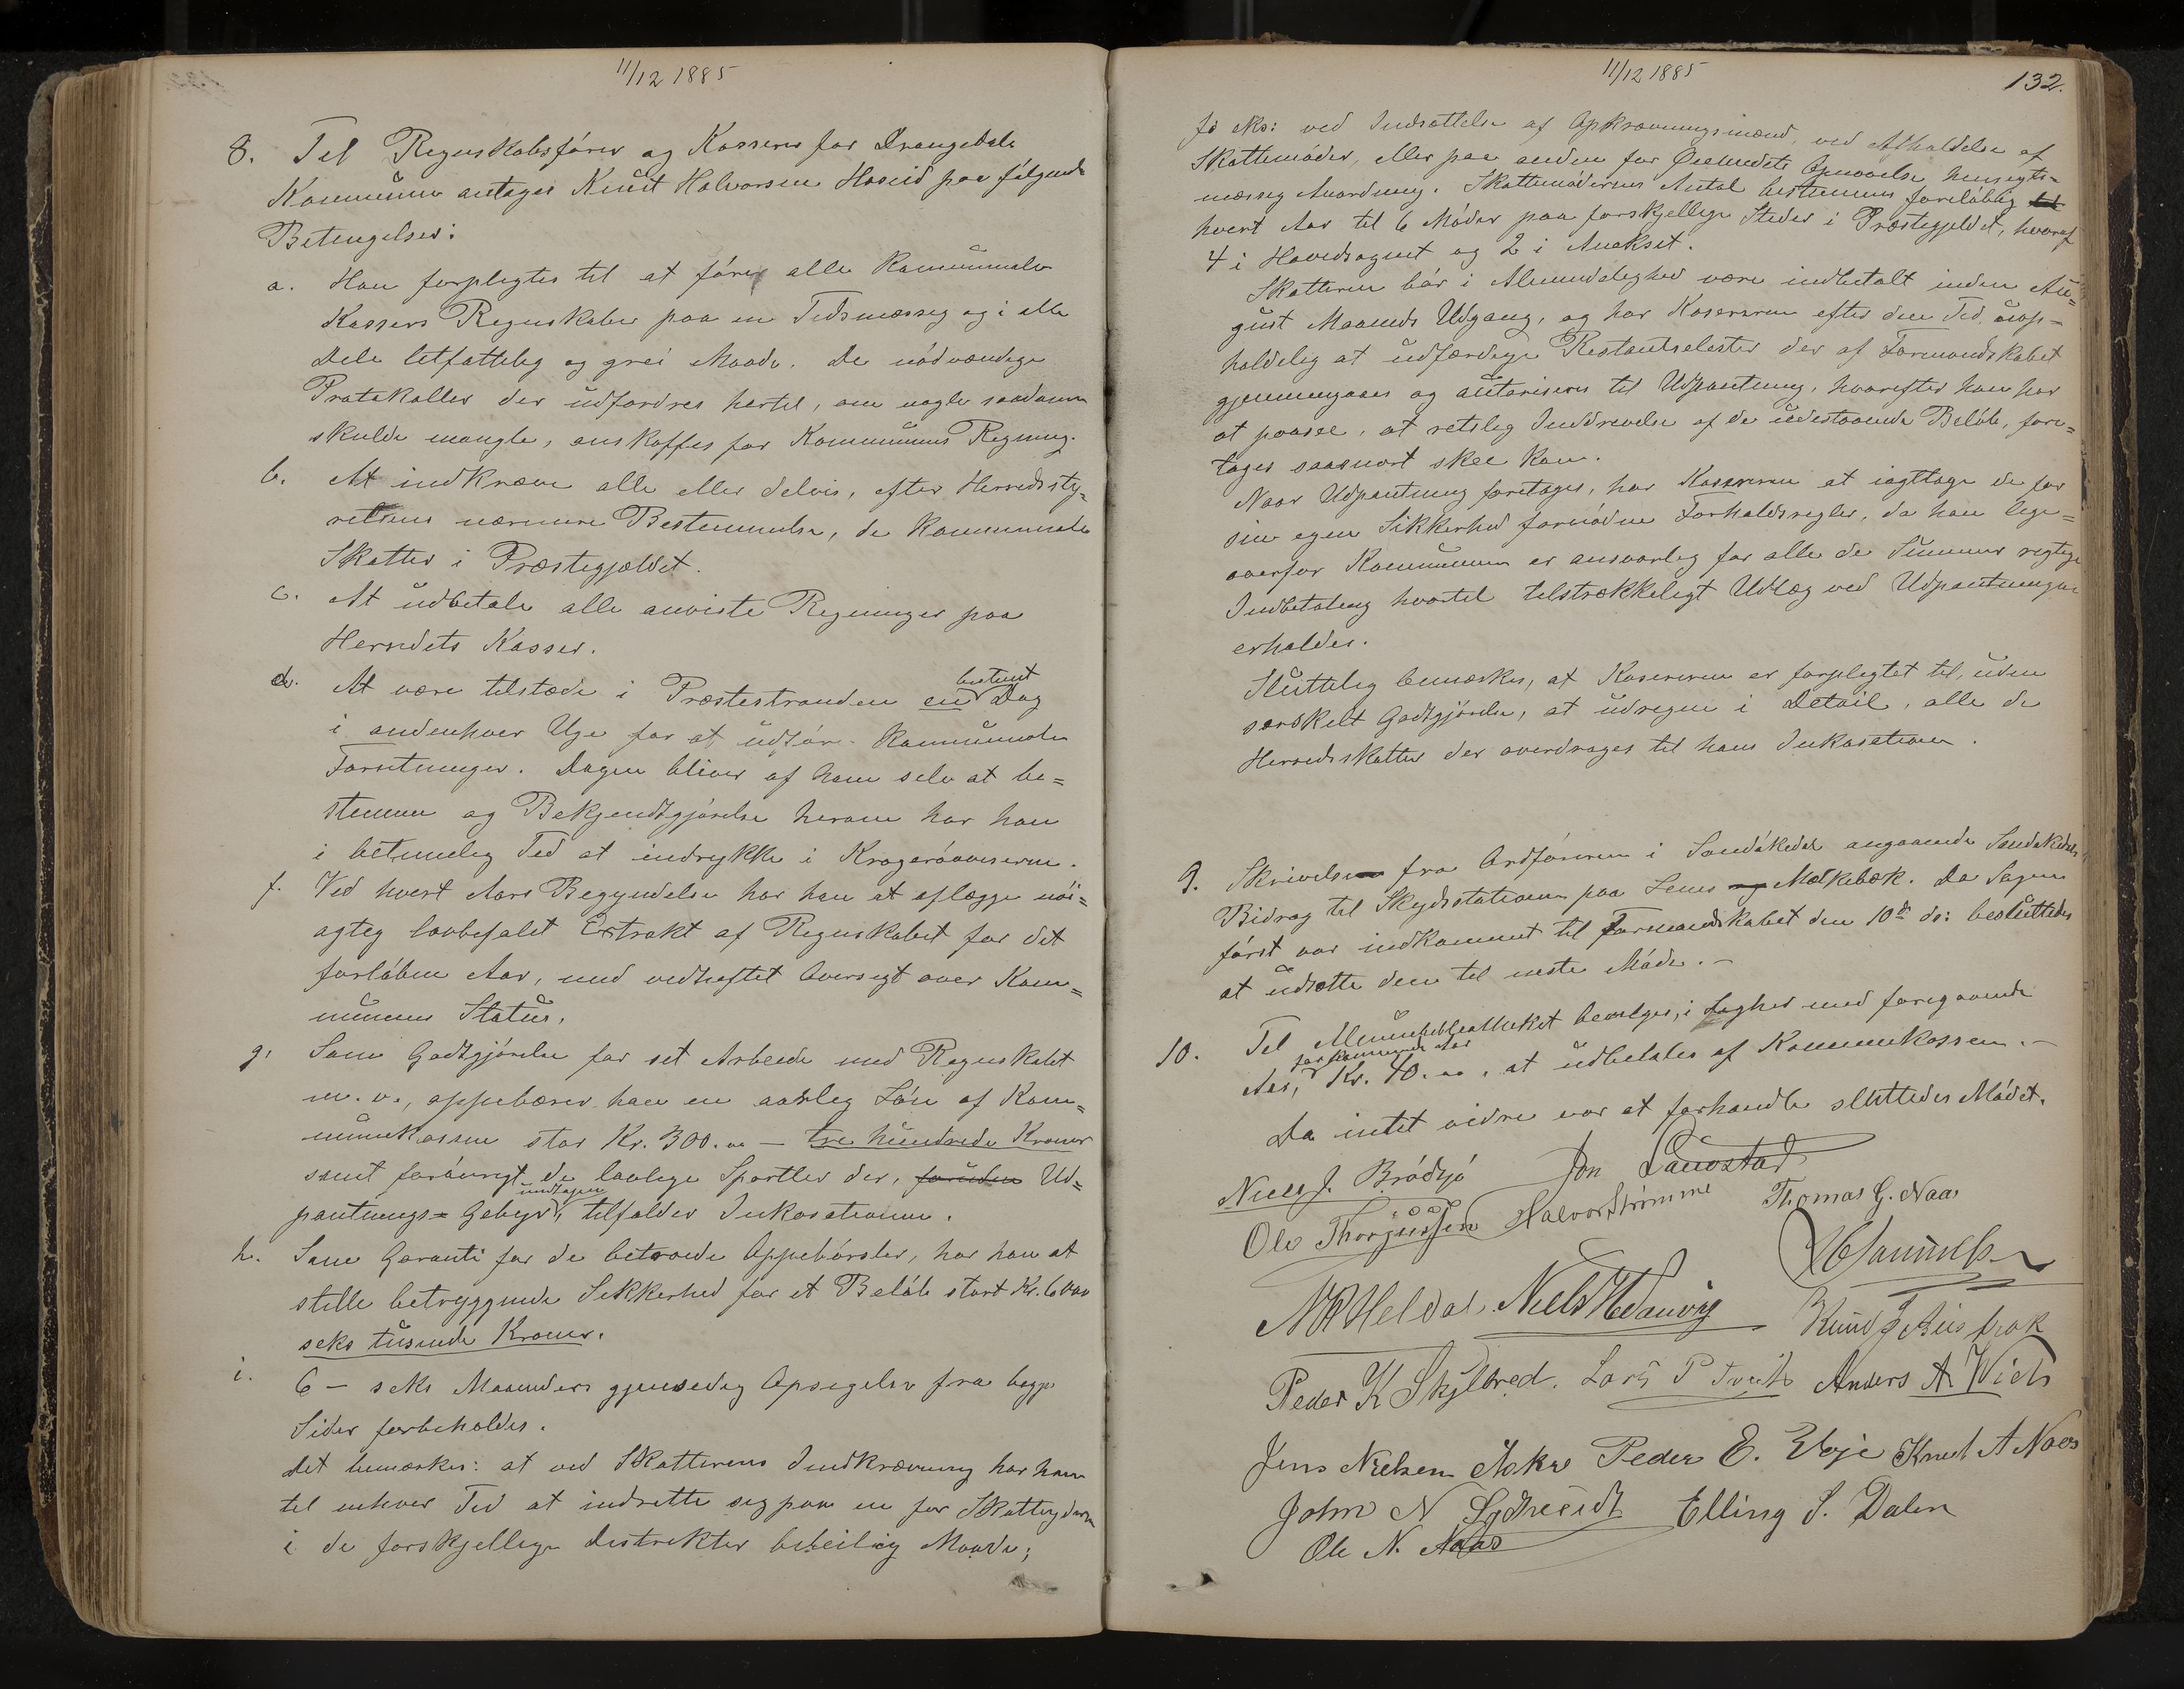 11/12 1885
8. Til Regnskabsfører og Kasserer for Drangedals
Kommune antages Knut Halvorsen Hoseid paa følgende
Betingelser:
a. Han forpligtes til at føre alle kommunale
Kassers Regnskaber paa en Tidsmæssig og i alle
Dele letfattelig og grei Maade. De nødvendige
Protokoller der udfordres hertil, om nogle saadanne
skulde mangle, anskaffes for Kommunens Regning.
b. At indkræve alle eller delvis, efter Herredssty=
relsens nærmere Bestemmelse, de kommunale
Skatter i Præstegjældet.
c. At udbetale alle anviste Regninger paa
Herredets Kasser.
d. At være tilstæde i Præstestranden en bestemt Dag
i andenhver Uge for at udføre kommunale
Forretninger. Dagen bliver af ham selv at be=
stemme og Bekjendtgjørelse herom har han
i betimelig Tid at indrykke i Kragerøaviserne.
f. Ved hvert Aars Begyndelse har han at aflægge nøi=
agtig lovbefalet Extrakt af Regnskabet for det
forløbne Aar, med vedheftet Oversigt over Kom=
munens Status.
g. Som Godtgjørelse for sit Arbeide med Regnskabet
m. v., oppebærer han en aarlig Løn af Kom=
munekassen stor Kr. 300.00 — tre hundrede Kroner
samt forøvrigt de lovlige Sportler der, foruden Ud=
pantnings= Gebyr undtagen, tilfalder Inkasationen.
h. Som Garanti for de betroede Oppebørsler, har han at
stille betryggende Sikkerhed for et Beløb stort Kr. 6000
seks tusinde Kroner.
i. 6 — seks Maaneders gjensidig Opsigelse fra begge
Sider forbeholdes.
Det bemærkes: at ved Skatterens Indkrævning har han
til enhver Tid at indrette sig paa en for Skatteyderne
i de forskjellige Distrikter beleilig Maade;
11/12 1885
132.
f. eks: ved Indsættelse af Opkrævningsmænd, ved Afholdelse af
Skattemøder, eller paa anden for Øiemedets Opnaaelse hensigts=
mæssig Anordning. Skattemødernes Antal bestemmes foreløbig til
hvert Aar til 6 Møder paa forskjellige Steder i Præstegjeldet, hvoraf
4 i Hovedsognet og 2 i Anekset.
Skatterne bør i Almindelighed være indbetalt inden Au=
gust Maaneds Udgang, og har Kasereren efter den Tid uop=
holdelig at udfærdige Restantselister der af Formandskabet
gjennemgaaes og autoriseres til Udpantning, hvorefter han har
at paasee, at retslig Inddrivelse af de udestaaende Beløb, fore=
tages saasnart skee kan.
Naar Udpantning foretages, har Kassereren at iagttage de for
sin egen Sikkerhed fornødne Forholdsregler, da han lige=
overfor Kommunen er ansvarlig for alle de Summers rigtige
Indbetaling hvortil tilstrækkeligt Udlæg ved Udpantningen
erholdes.
Sluttelig bemærkes, at Kasereren er forpligtet til, uden
særskilt Godtgjørelse, at udregne i Detail, alle de
Herredsskatter der overdrages til hans Inkasation.
9. Skrivelse fra Ordføreren i Sandøkedal angaaende Sandøkedals
Bidrag til Skydsstationen paa Lenes og Melkebæk. Da Sagen
først var indkommet til Formandskabet den 10de ds: besluttedes
at udsætte den til neste Møde. –
10. Til Almuebibliotheket bevilges, i Lighed med foregaaende
Aar, for kommende Aar Kr. 40.00, at udbetales af Kommunekassen. –
Da intet videre var at forhandle sluttedes Mødet.
Niels J. Brødsjø Jon Laurstad
Ole Thorjussen Halvor Strømme Thomas G. Naas
Samuelsen
N R Heldal. Niels Wanvig Knud J Ausbrok
Peder K Skjelbred. Lars P Tveit Anders A Wich
Jens Nielsen Aakre Peder E. Voje Knut A Naas
John N Lytheeidt Elling S. Dalen
Ole N. Naas